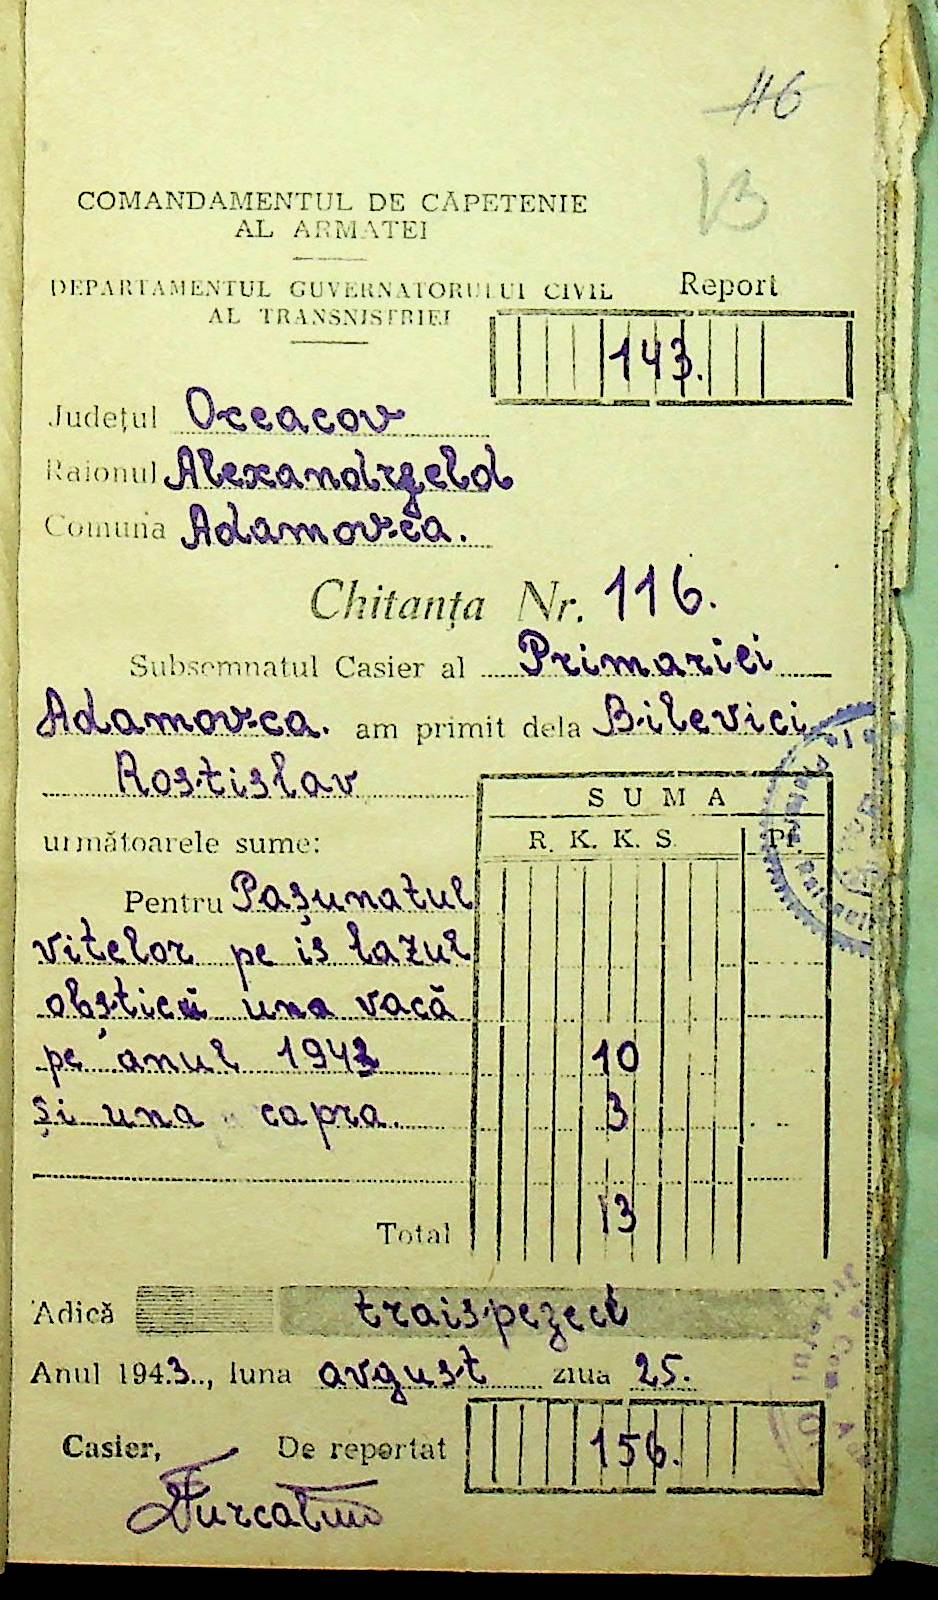 116
13
COMANDAMENTUL DE CĂPETENIE
AL ARMATEI
DEPARTAMENTUL GUVERNATORULUI CIVIL
AL TRANSNISTRIEI
Report
143.
Județul Oceacov
Raionul Alexandrgeld
Comuna Adamovca.
Chitanța Nr. 116.
Subsemnatul Casier al Primariei
Adamovca. am primit dela Bilevici
Rostislav
SUMA
următoarele sume:
R. K. K. S. Pf.
Pentru Pașunatul
vitelor pe islazul
obștică una vacă
pe anul 1943 10
și una capra. 3
Total 13
Adică traispezeci
Anul 1943.., luna avgust ziua 25.
Casier, De reportat 156.